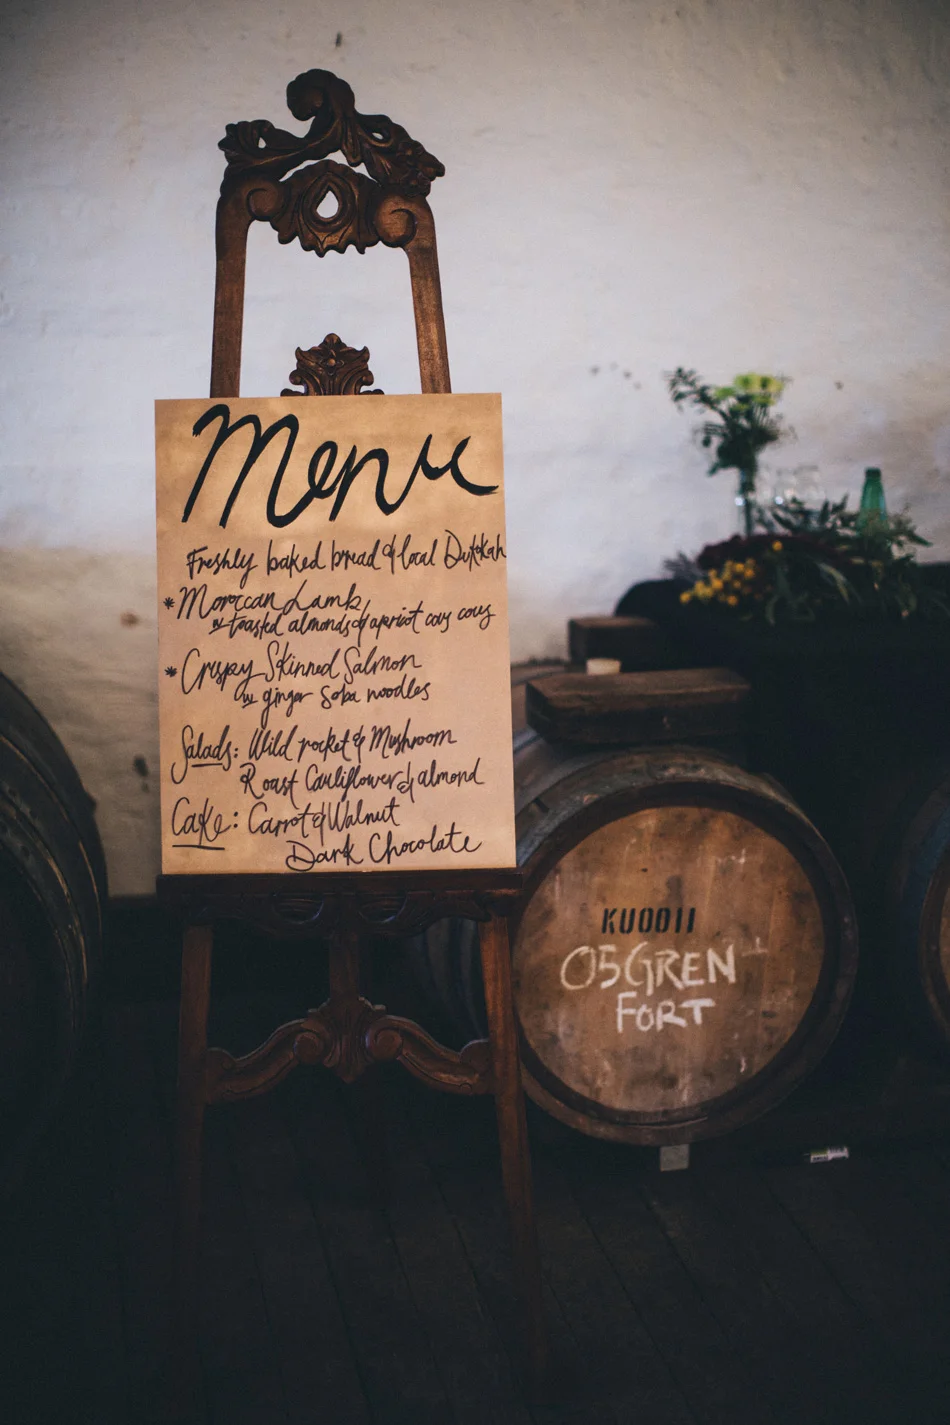 Menu
Freshly baked bread & local Dukkah
* Moroccan Lamb
w toasted almonds & apricot cous cous
* Crispy Skinned Salmon
w ginger soba noodles
Salads: Wild rocket & Mushroom
Roast Cauliflower & almond
Cake: Carrot & Walnut
Dark Chocolate
KU0011
05GREN
FORT